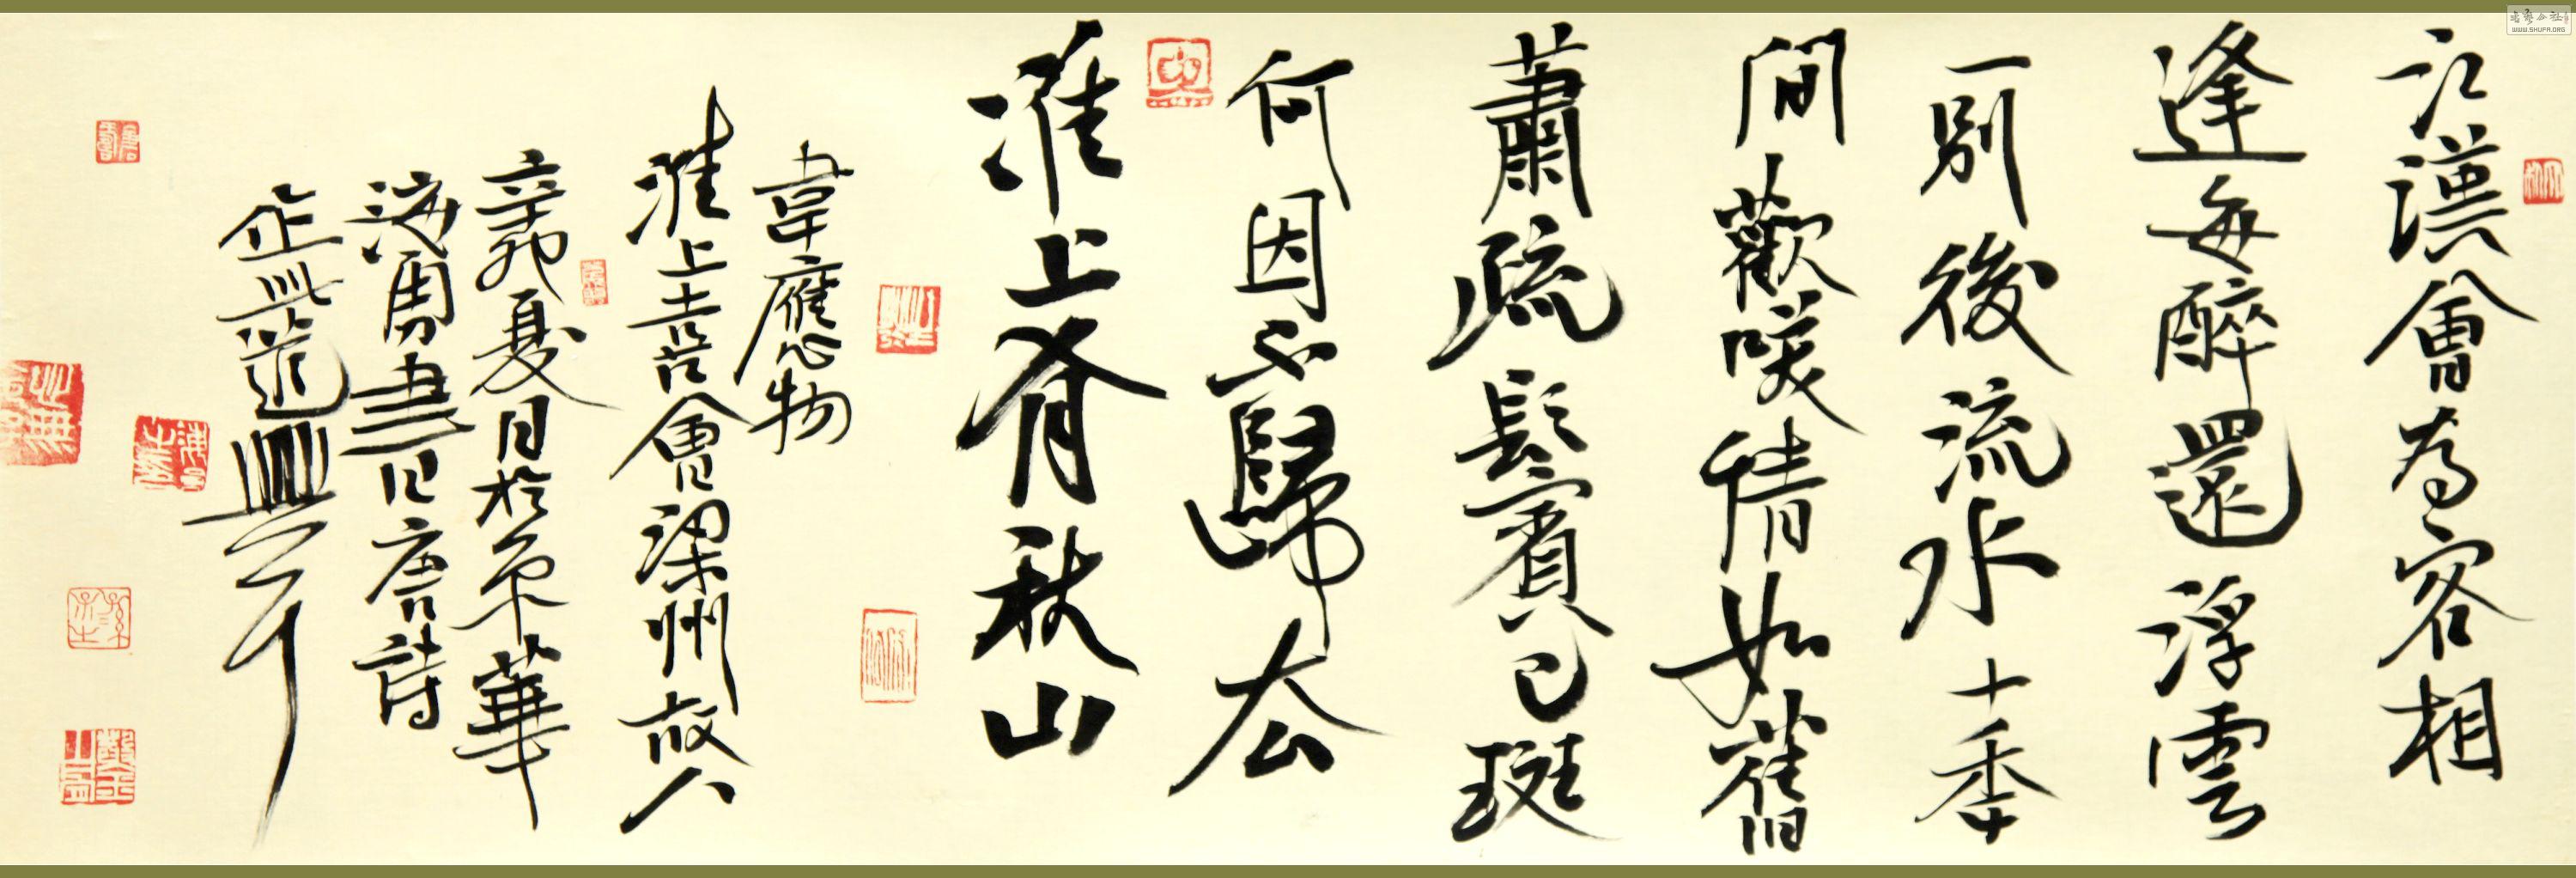 江漢會為客相
逢每醉還浮雲
一別後流水十秊
間歡咲情如舊
蕭疏鬢已斑
何因不歸去
淮上有秋山
韋應物
淮上喜會梁州故人
辛卯夏日於京華
海勇書唐詩
WWW.SHUFA.ORG